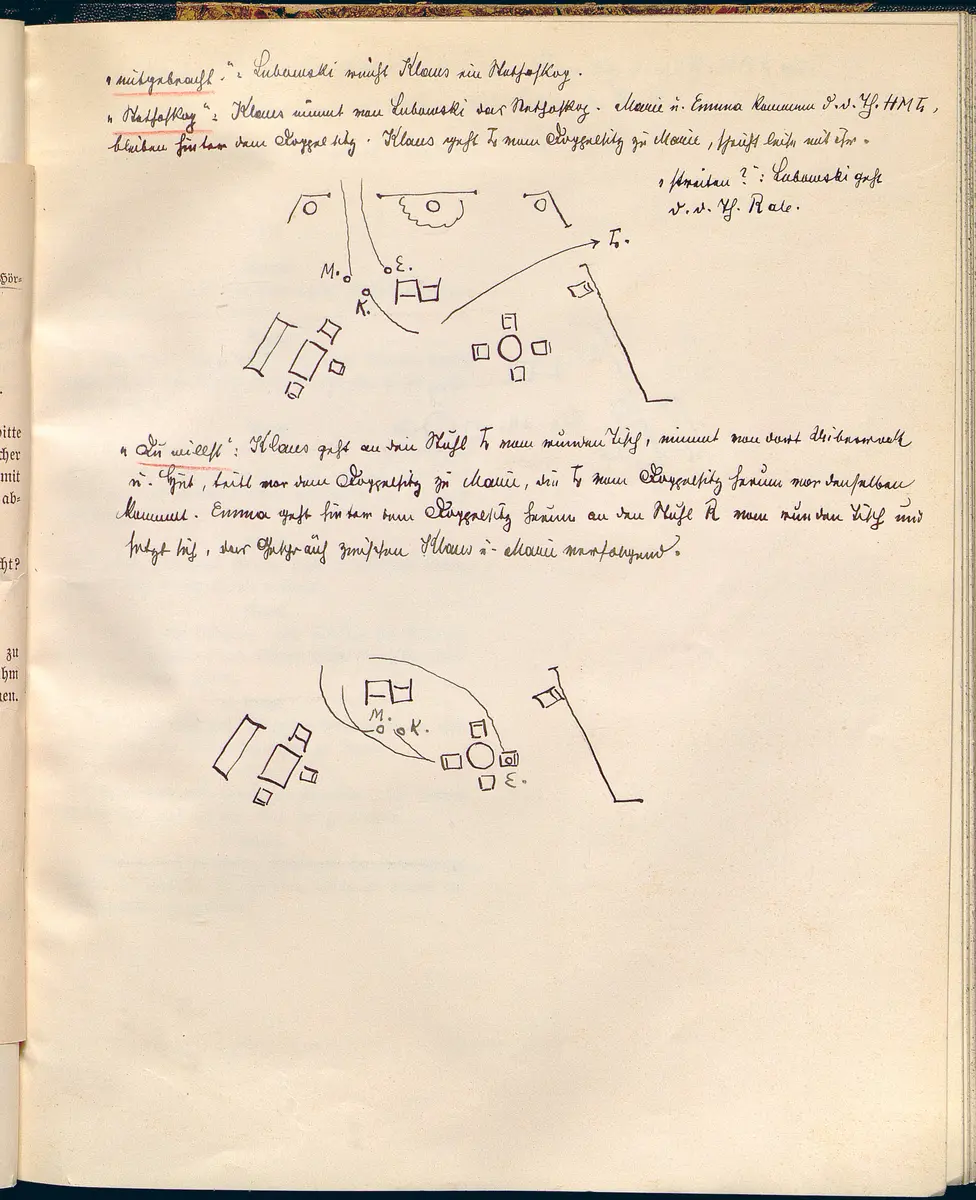 „mitgebracht.": Lubowski reicht Klaus ein Stethoskop.
„Stethoskop": Klaus nimmt von Lubowski das Stethoskop. Marie u. Emma kommen d. d. Th. HML,
bleiben hinter dem Doppelsitz. Klaus geht L vom Doppelsitz zu Marie, spricht leise mit ihr.
„streiten?": Lubowski geht
d. d. Th. R ab.
L.
M.
E.
K.
„Du willst": Klaus geht an den Stuhl L vom runden Tisch, nimmt von dort Überrock
u. Hut, tritt vor dem Doppelsitz zu Marie, die L vom Doppelsitz herum vor denselben
kommt. Emma geht hinter dem Doppelsitz herum an den Stuhl R vom runden Tisch und
setzt sich, das Gespräch zwischen Klaus u. Marie verfolgend.
M.
K.
E.
Hör-
bitte
cher
mit
ab-
cht?
zu
ihm
nen.